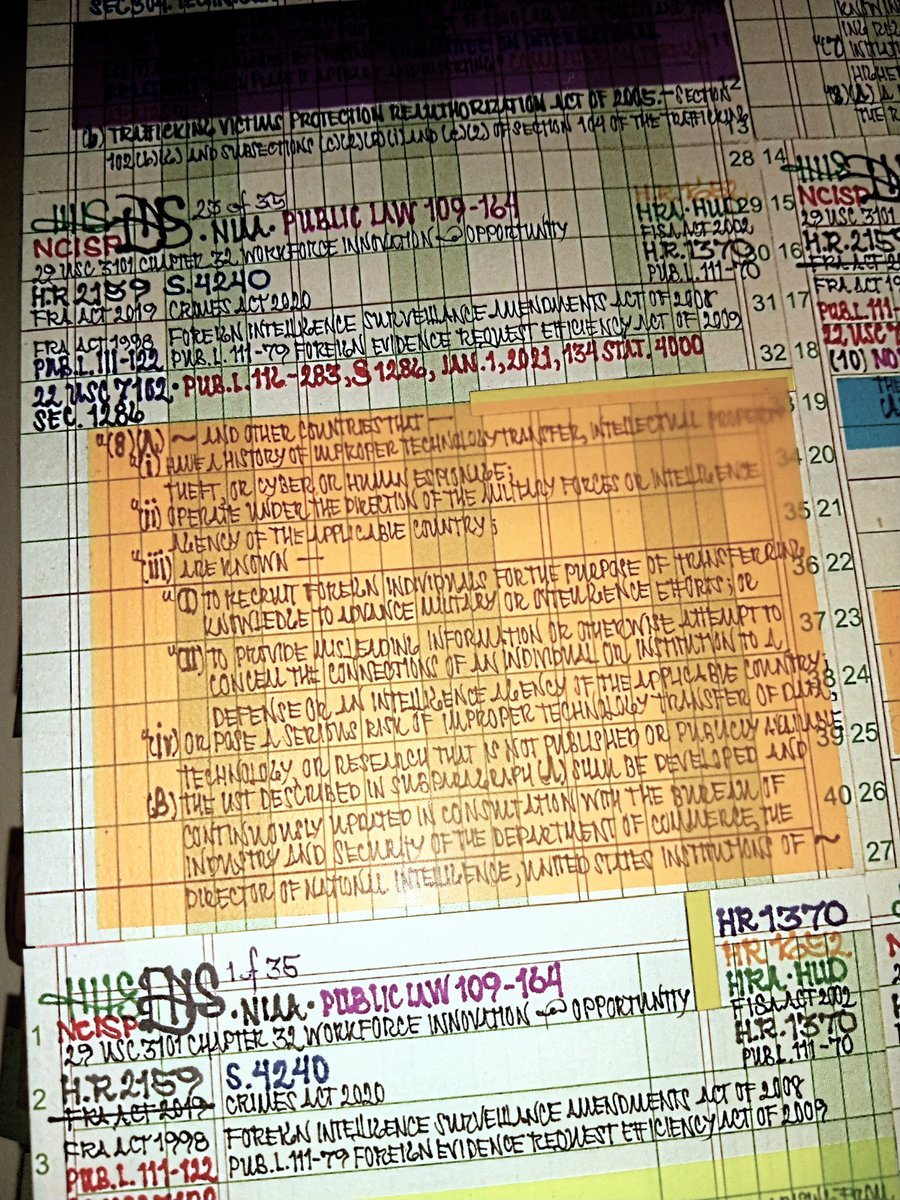 SEC. 304. TECHNIC
(b) TRAFFICKING VICTIMS PROTECTION REAUTHORIZATION ACT OF 2005.—SECTION
102(b)(6) AND SUBSECTIONS (c)(2)(B)(i) AND (e)(2) OF SECTION 104 OF THE TRAFFICKING
11
12
13
28 14
HHS DNS 25 of 35
NCISP · NIAA · PUBLIC LAW 109-164
29 USC 3101 CHAPTER 32 WORKFORCE INNOVATION OPPORTUNITY
H.R 2159 S.4240
FRA ACT 2019 CRIMES ACT 2020
FRA ACT 1998 FOREIGN INTELLIGENCE SURVEILLANCE AMENDMENTS ACT OF 2008
PUB.L.111-122 PUB.L. 111-79 FOREIGN EVIDENCE REQUEST EFFICIENCY ACT OF 2009
22 USC 7102 · PUB.L. 116-283, § 1286, JAN.1,2021, 134 STAT. 4000
SEC. 1286
H.R 1692
HRA·HUD 29 15
FISA ACT 2002
H.R.1370 30 16
PUB.L.111-70
31 17
32 18
19
"(8)(A) ~ AND OTHER COUNTRIES THAT —
"(i) HAVE A HISTORY OF IMPROPER TECHNOLOGY TRANSFER, INTELLECTUAL PROPERTY
THEFT, OR CYBER OR HUMAN ESPIONAGE; 34 20
"(ii) OPERATE UNDER THE DIRECTION OF THE MILITARY FORCES OR INTELLIGENCE
AGENCY OF THE APPLICABLE COUNTRY; 35 21
"(iii) ARE KNOWN —
"(I) TO RECRUIT FOREIGN INDIVIDUALS FOR THE PURPOSE OF TRANSFERRING 36 22
KNOWLEDGE TO ADVANCE MILITARY OR INTELLIGENCE EFFORTS; OR
"(II) TO PROVIDE MISLEADING INFORMATION OR OTHERWISE ATTEMPT TO 37 23
CONCEAL THE CONNECTIONS OF AN INDIVIDUAL OR INSTITUTION TO A
DEFENSE OR AN INTELLIGENCE AGENCY OF THE APPLICABLE COUNTRY; 38 24
"(iv) OR POSE A SERIOUS RISK OF IMPROPER TECHNOLOGY TRANSFER OF DATA,
TECHNOLOGY, OR RESEARCH THAT IS NOT PUBLISHED OR PUBLICLY AVAILABLE 39 25
(B) THE LIST DESCRIBED IN SUBPARAGRAPH (A) SHALL BE DEVELOPED AND
CONTINUOUSLY UPDATED IN CONSULTATION WITH THE BUREAU OF 40 26
INDUSTRY AND SECURITY OF THE DEPARTMENT OF COMMERCE, THE
DIRECTOR OF NATIONAL INTELLIGENCE, UNITED STATES INSTITUTIONS OF ~ 27
HHS DNS 1 of 35
1 NCISP · NIAA · PUBLIC LAW 109-164
29 USC 3101 CHAPTER 32 WORKFORCE INNOVATION OPPORTUNITY
2 H.R 2159 S.4240
FRA ACT 2019 CRIMES ACT 2020
3 FRA ACT 1998 FOREIGN INTELLIGENCE SURVEILLANCE AMENDMENTS ACT OF 2008
PUB.L.111-122 PUB.L.111-79 FOREIGN EVIDENCE REQUEST EFFICIENCY ACT OF 2009
HR 1370
HR 1692
HRA·HUD
FISA ACT 2002
H.R.1370
PUB.L.111-70
HHS
NCISP
29 USC 3101
H.R.2159
FRA ACT
PUB.L.111-
22 USC 7
(10)